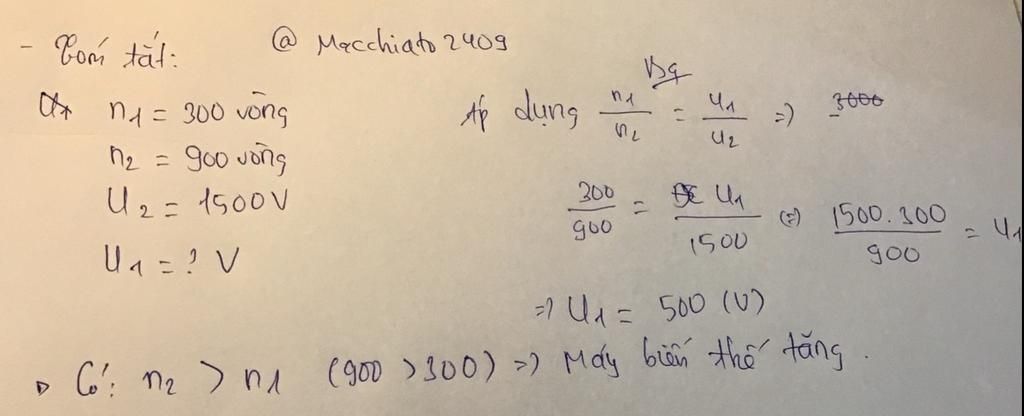 - Tóm tắt: @ Macchiato2409
n1 = 300 vòng
n2 = 900 vòng
U2 = 1500V
U1 = ? V
Bg
Áp dụng n1/n2 = U1/U2 =>
300/900 = U1/1500 (=) 1500.300/900 = U1
=> U1 = 500 (V)
Có: n2 > n1 (900 > 300) => Máy biến thế tăng.